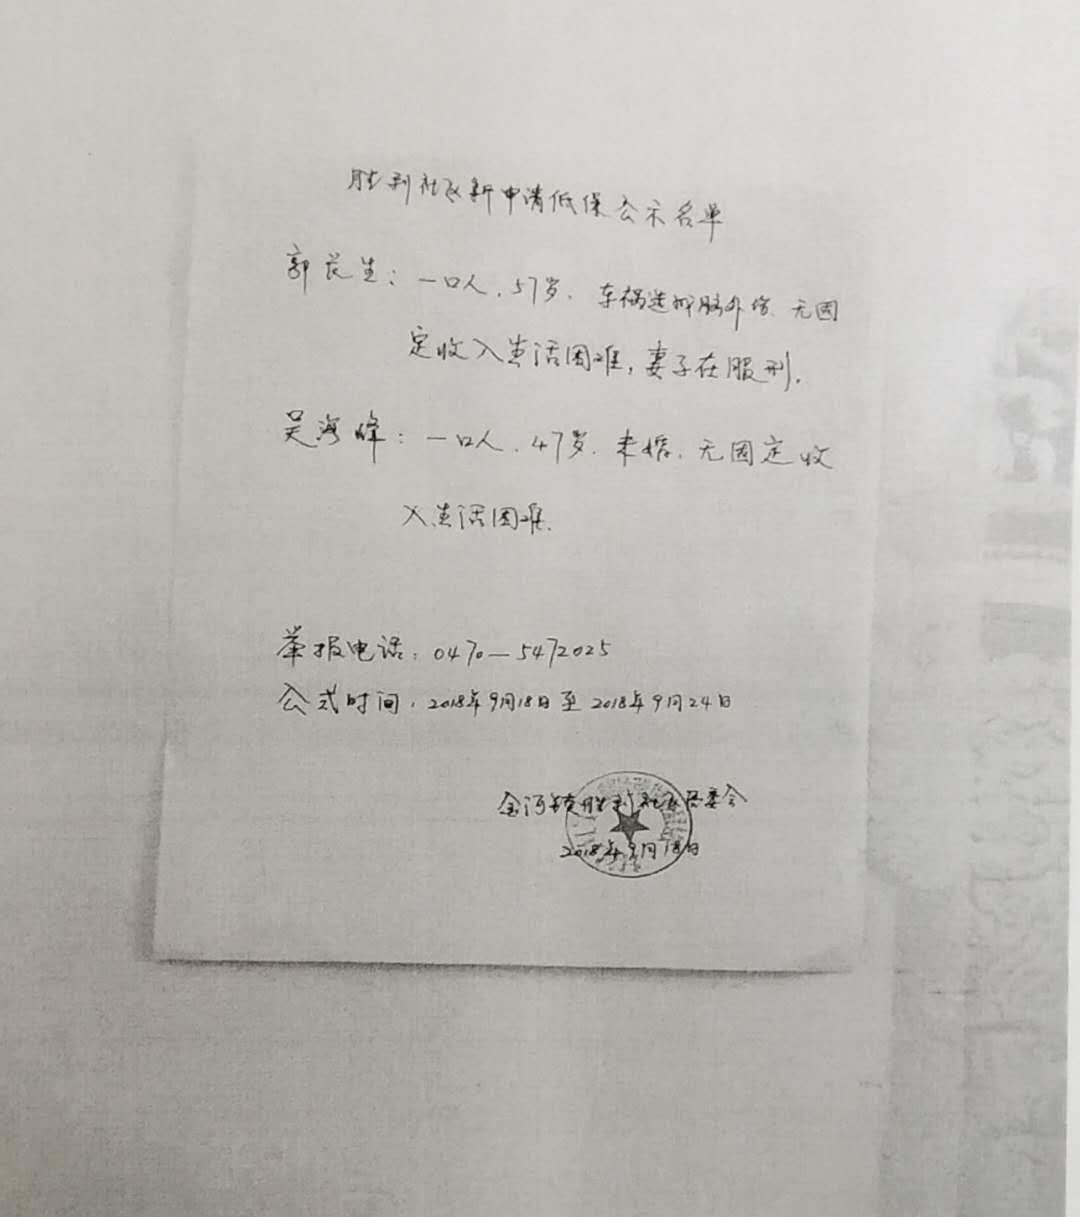 胜利社区新申请低保公示名单
郭长生：一口人，57岁，车祸造成脑外伤、无固
定收入生活困难，妻子在服刑。
吴海峰：一口人，47岁，未婚，无固定收
入生活困难。
举报电话：0470—5472025
公式时间：2018年9月18日至2018年9月24日
金河镇胜利社区居委会
2018年9月18日